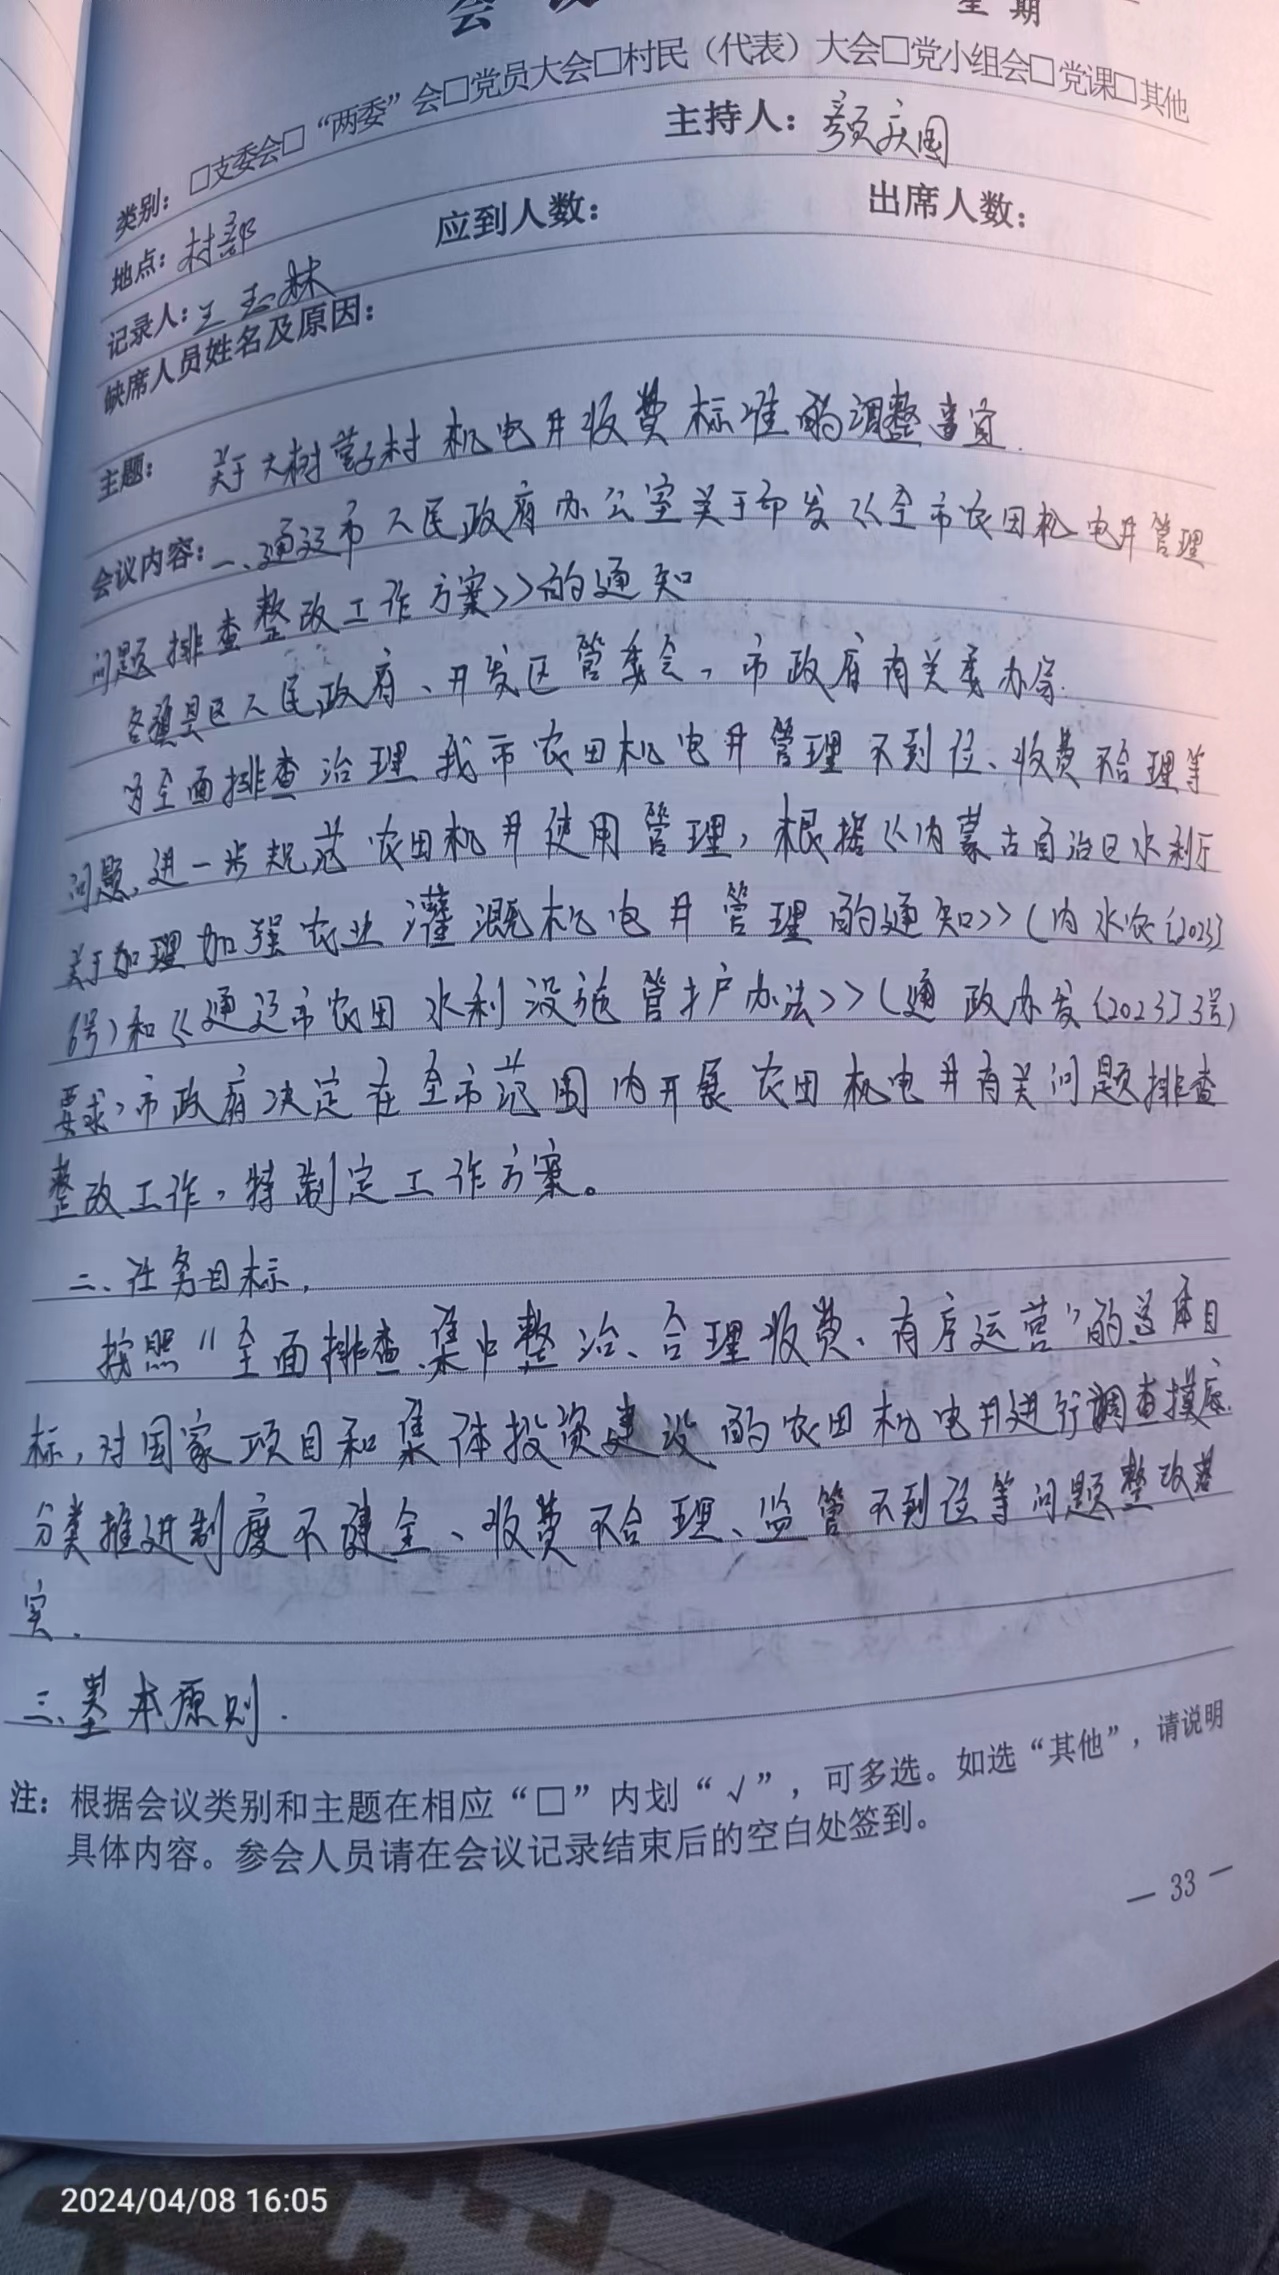 星期
类别：□支委会□“两委”会□党员大会□村民（代表）大会□党小组会□党课□其他
主持人：颜庆国
地点：村部 应到人数： 出席人数：
记录人：王玉林
缺席人员姓名及原因：
主题： 关于大树营子村机电井收费标准的调整事宜.
会议内容：一、通辽市人民政府办公室关于印发《全市农田机电井管理
问题排查整改工作方案》的通知
各旗县区人民政府、开发区管委会，市政府有关委办局.
为全面排查治理我市农田机电井管理不到位、收费不合理等
问题,进一步规范农田机井使用管理，根据《内蒙古自治区水利厅
关于加理加强农业灌溉机电井管理的通知》(内水农〔2023〕
6号)和《通辽市农田水利设施管护办法》(通政办发〔2023〕3号)
要求,市政府决定在全市范围内开展农田机电井有关问题排查
整改工作，特制定工作方案。
二、任务目标.
按照“全面排查、集中整治、合理收费、有序运营”的总体目
标，对国家项目和集体投资建设的农田机电井进行调查摸底.
分类推进制度不健全、收费不合理、监管不到位等问题整改落
实.
三、基本原则.
注：根据会议类别和主题在相应“□”内划“√”，可多选。如选“其他”，请说明
具体内容。参会人员请在会议记录结束后的空白处签到。
— 33 —
2024/04/08 16:05